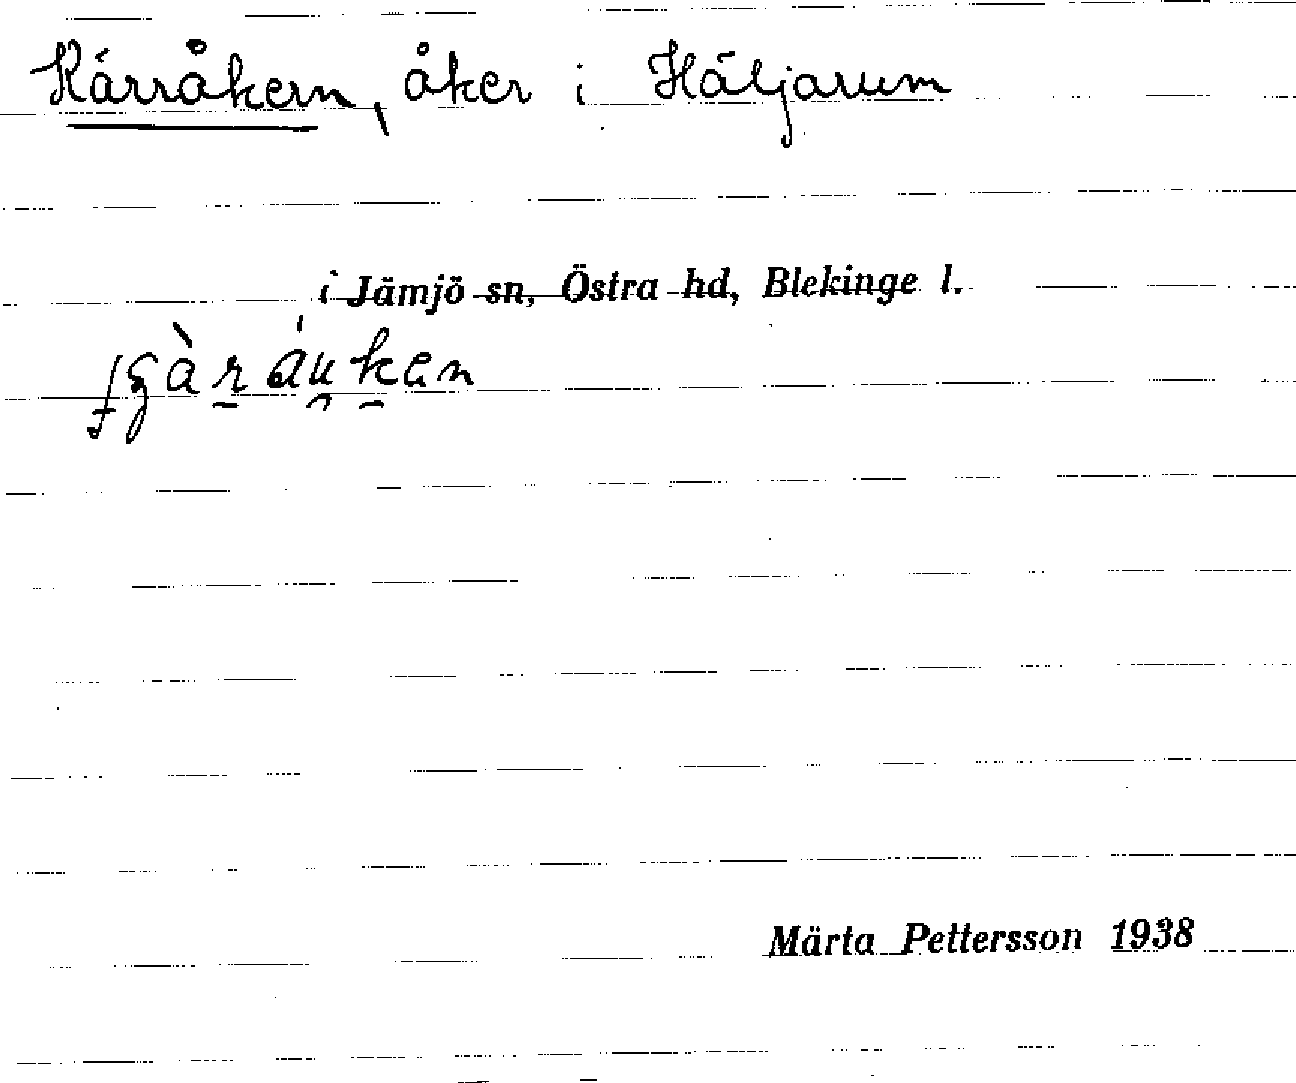 Kärråkern, åker i Häljarum
i Jämjö sn, Östra hd, Blekinge l.
Märta Pettersson 1938